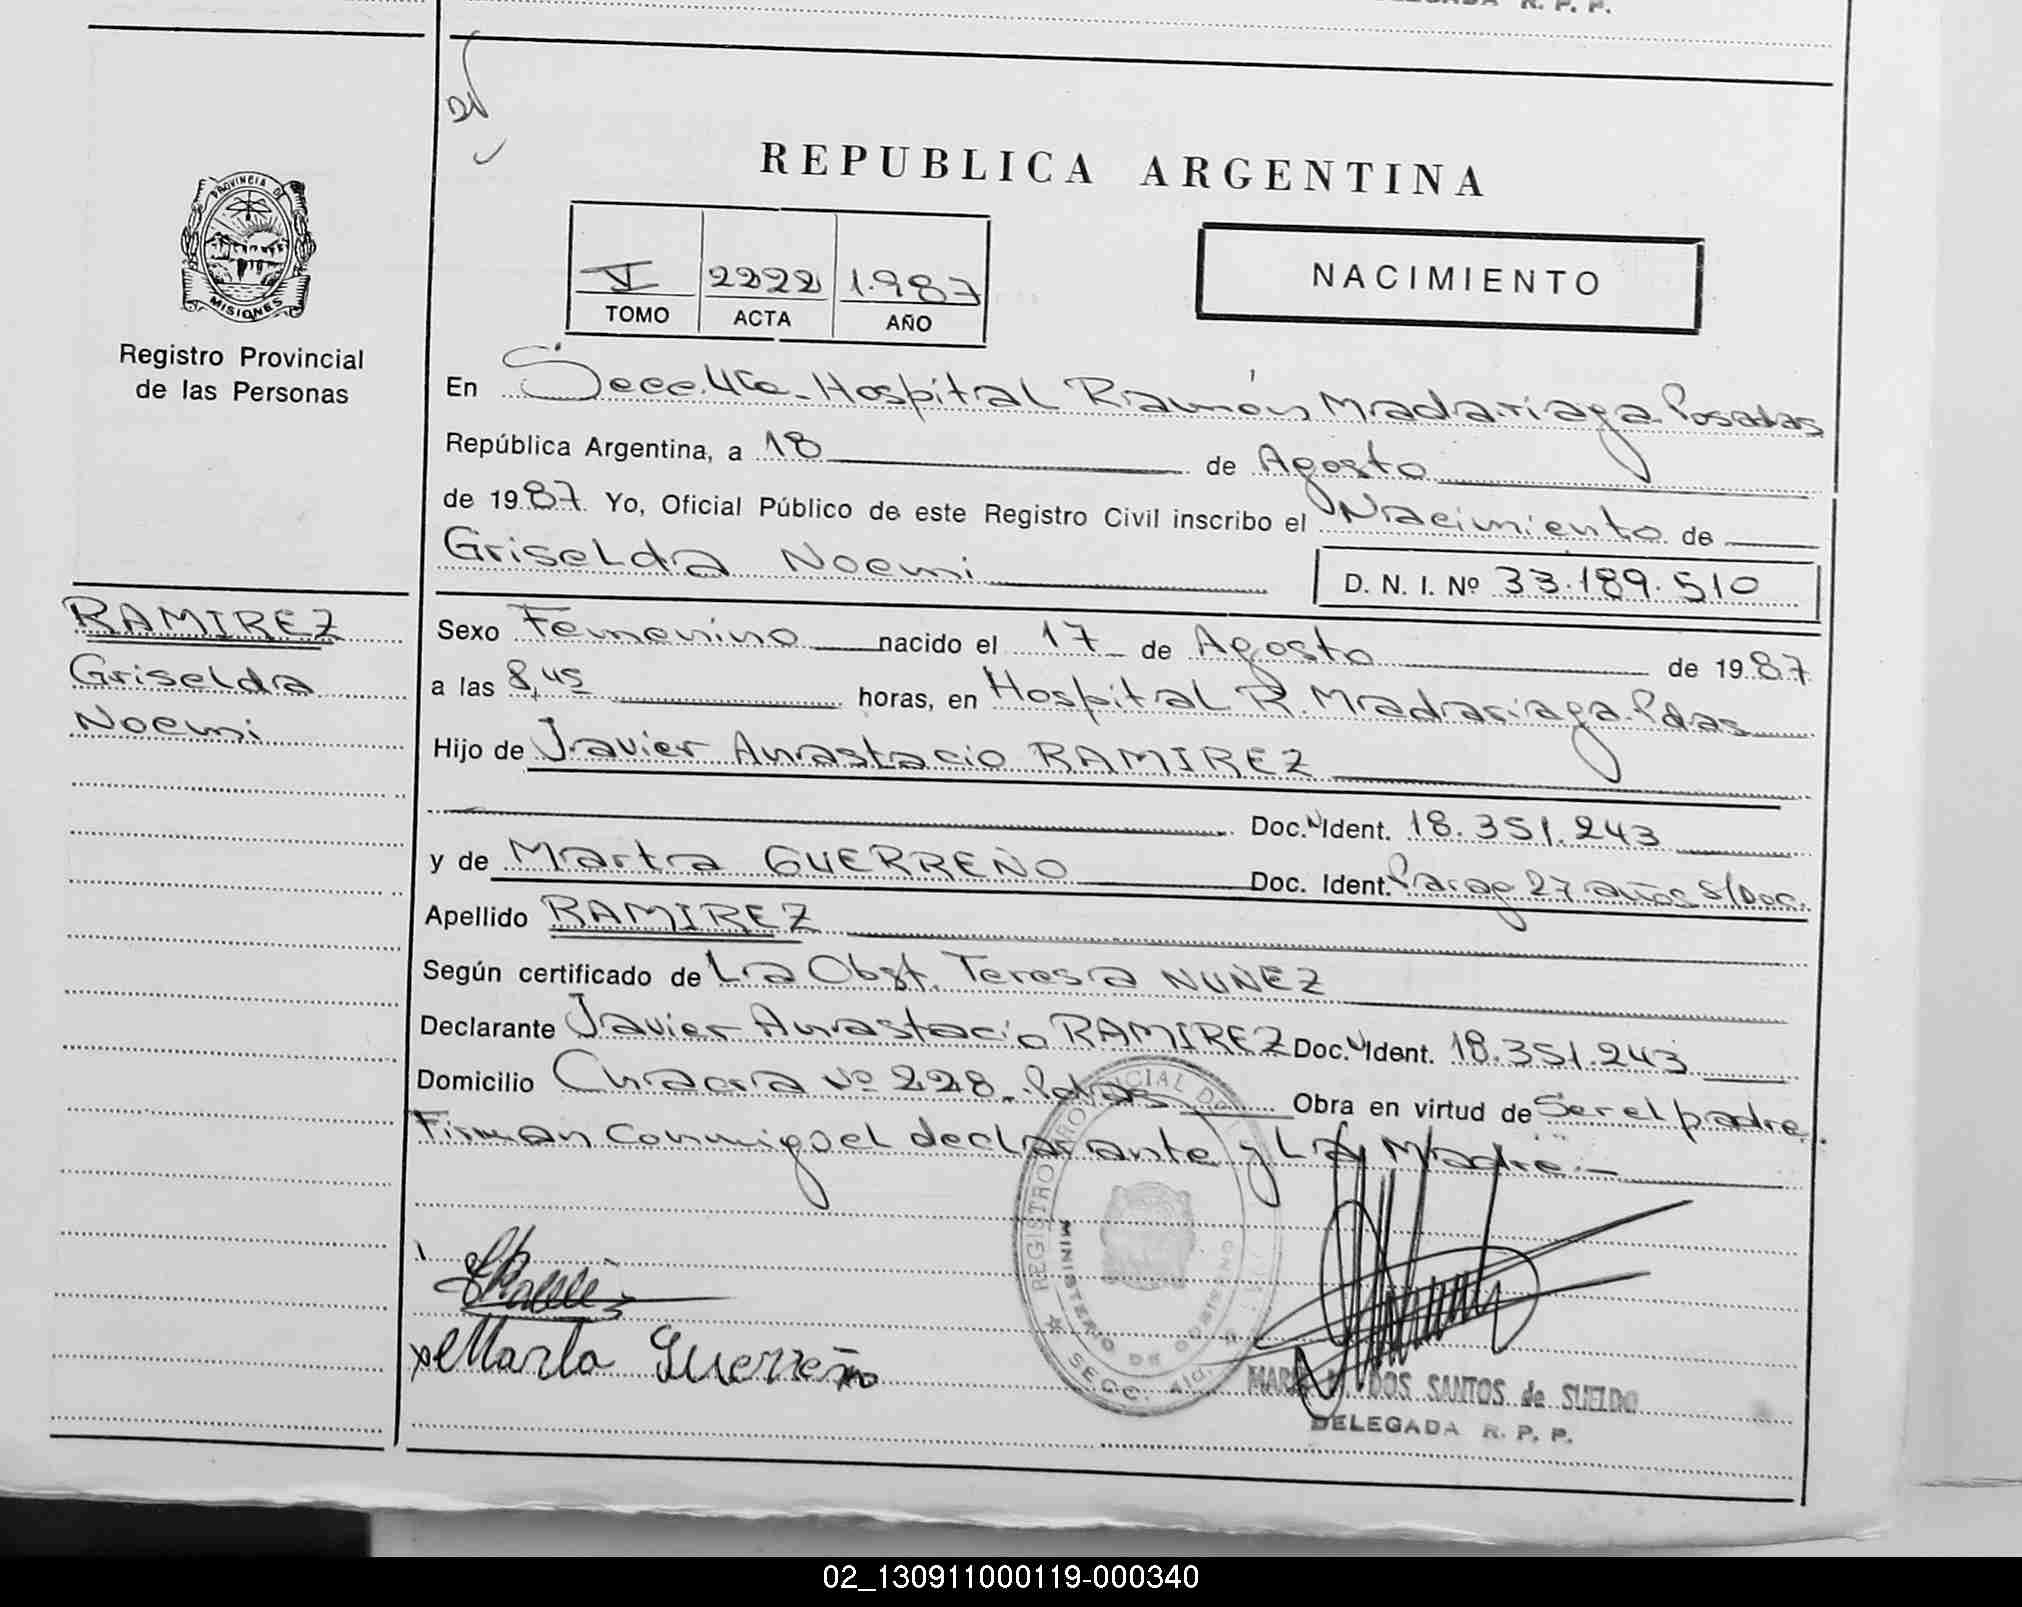 DELEGADA R. P. P.
REPUBLICA ARGENTINA
PROVINCIA DE
MISIONES
Registro Provincial
de las Personas
V 2222 1.987
TOMO ACTA AÑO
NACIMIENTO
En Secc. 4ta - Hospital Ramón Madariaga Posadas
República Argentina, a 18 de Agosto
de 1987 Yo, Oficial Público de este Registro Civil inscribo el Nacimiento de
Griselda Noemi D. N. I. Nº 33.189.510
RAMIREZ
Griselda
Noemi
Sexo Femenino nacido el 17 de Agosto de 1987
a las 8,45 horas, en Hospital R. Madariaga Pdas
Hijo de Javier Anastacio RAMIREZ
Doc. N Ident. 18.351.243
y de Marta GUERREÑO Doc. Ident. Parag 27 años S/Doc.
Apellido RAMIREZ
Según certificado de La Obst. Teresa NUÑEZ
Declarante Javier Anastacio RAMIREZ Doc. N Ident. 18.351.243
Domicilio Chacra Nº 228 - Pdas Obra en virtud de Ser el padre.
Firman Conmigo el declarante y La Madre.-
REGISTRO PROVINCIAL DE
MINISTERIO DE GOBIERNO
SECC. 4ta.
x Marta Guerreño
DOS SANTOS de SUELDO
DELEGADA R. P. P.
02_130911000119-000340